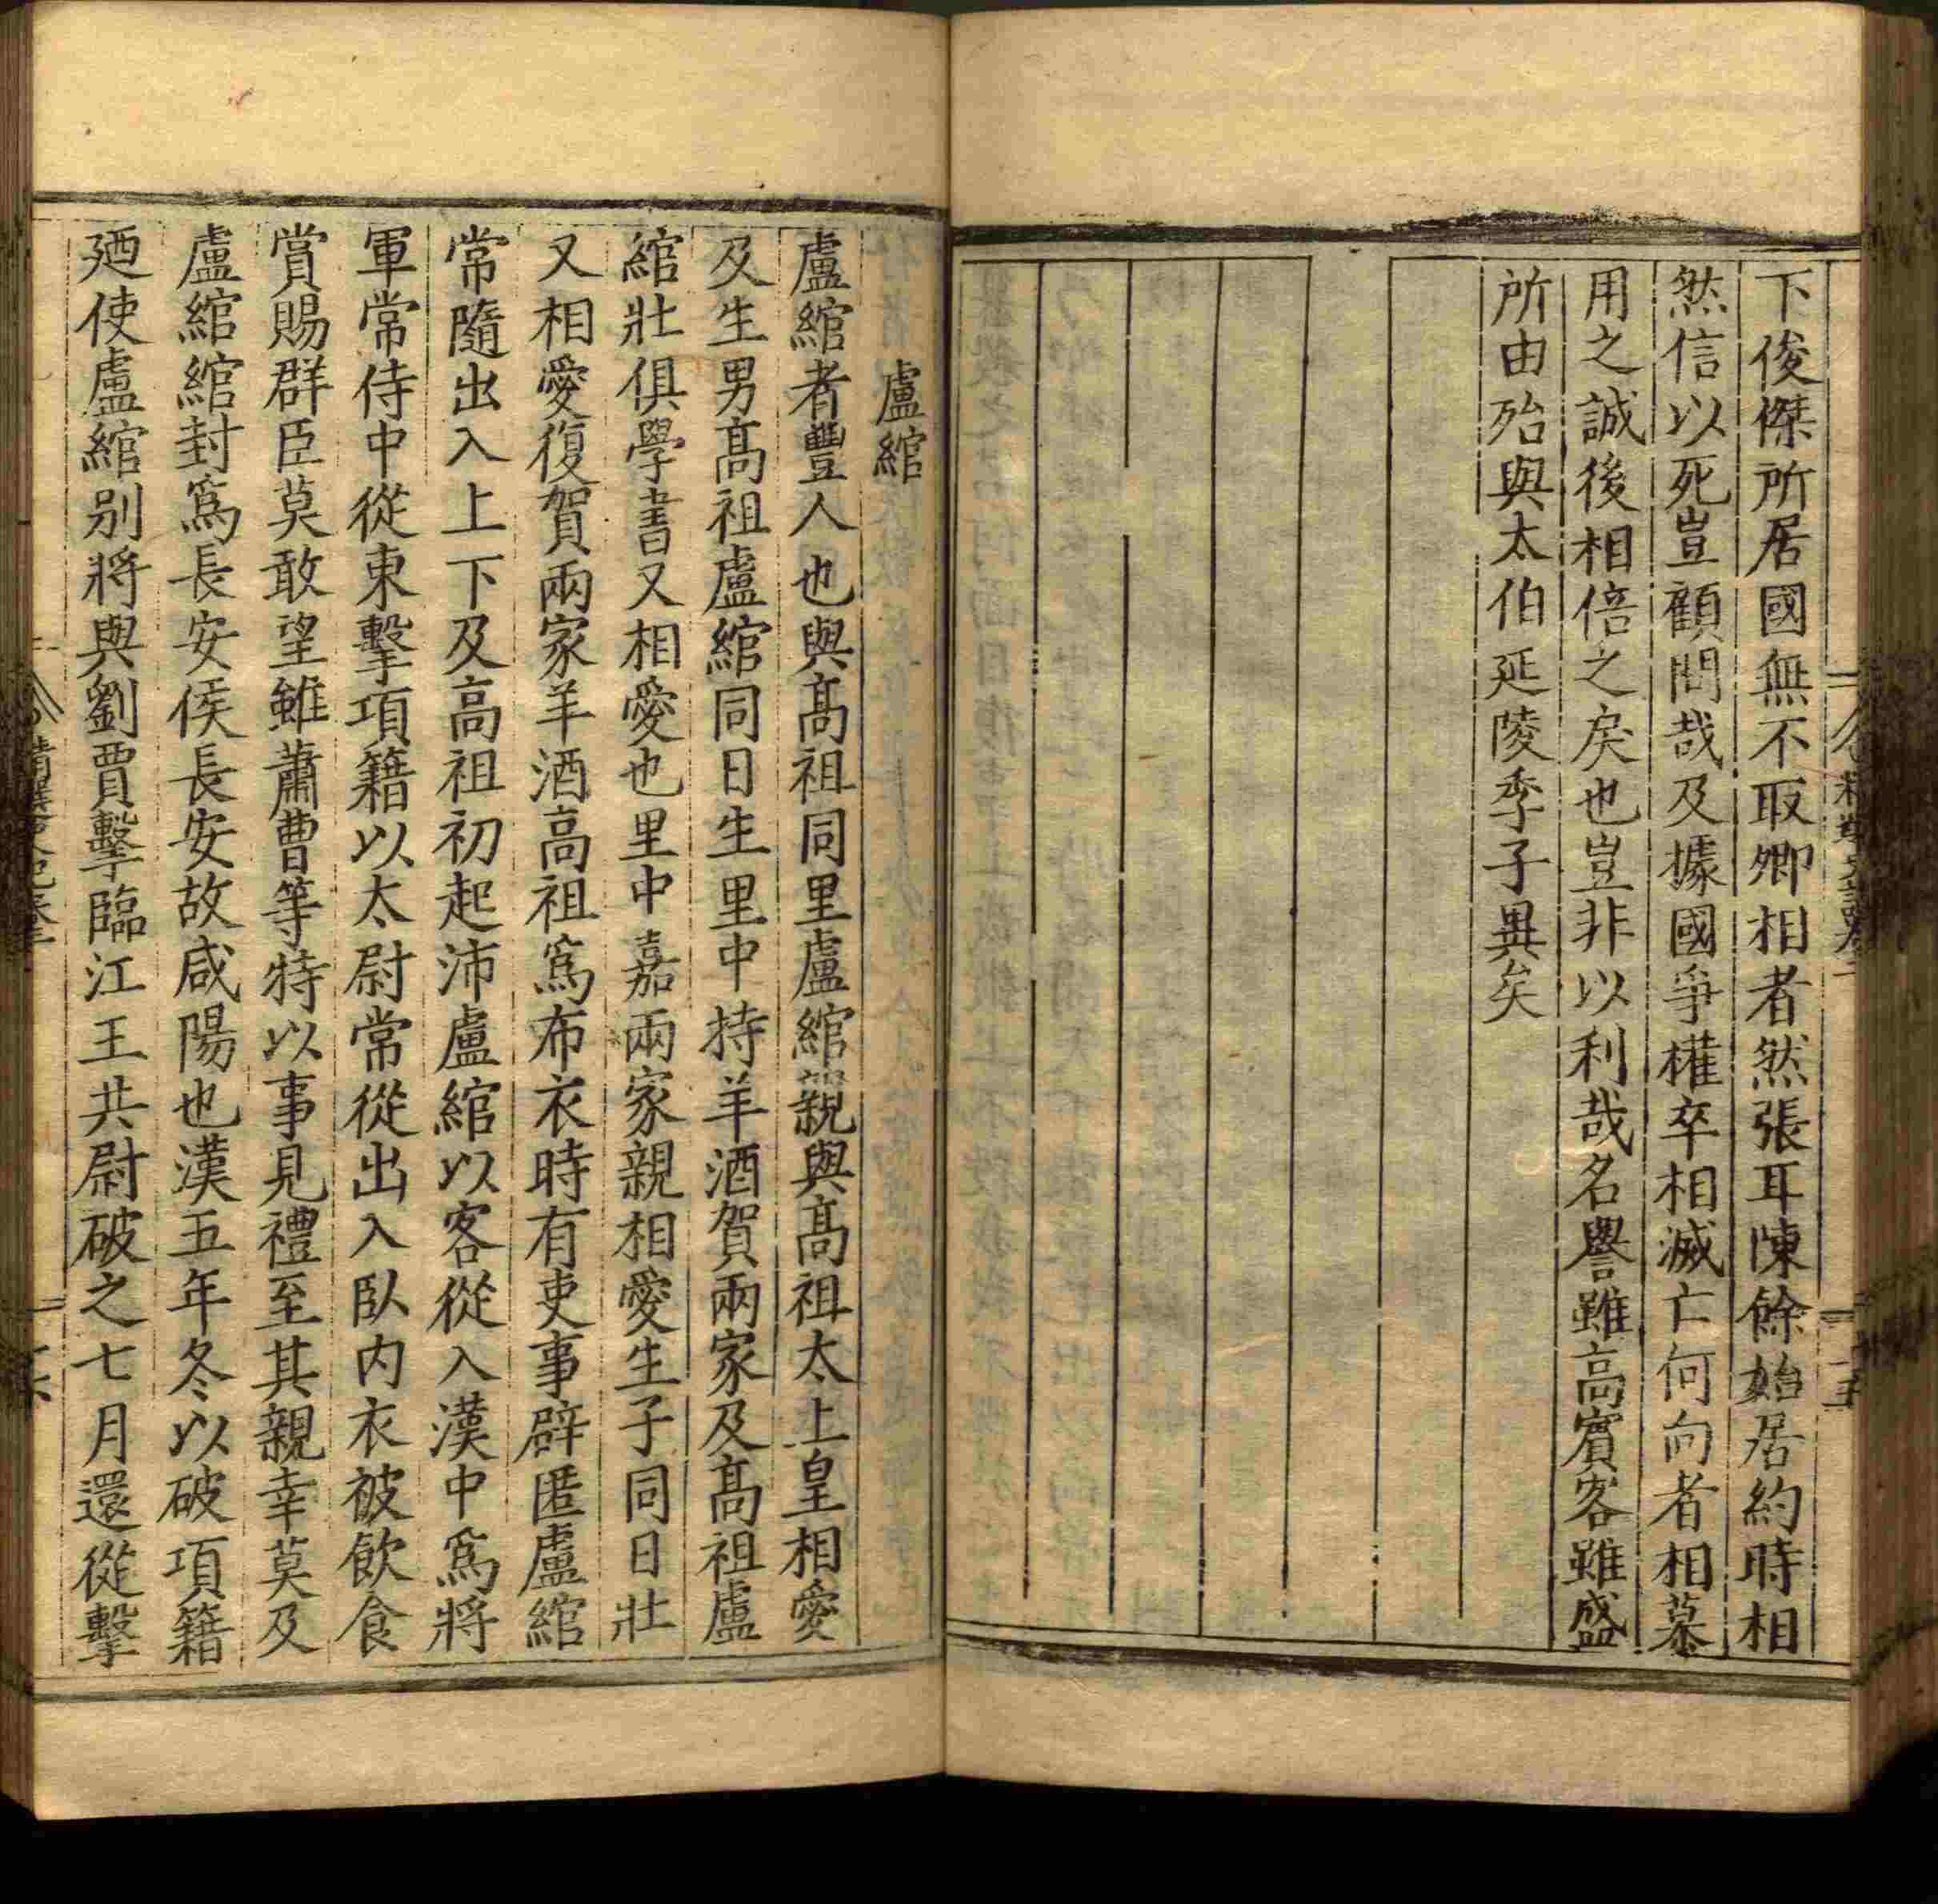 下俊傑所居國無不取卿相者然張耳陳餘始居約時相
然信以死豈顧問哉及據國爭權卒相滅亡何向者相慕
用之誠後相倍之戾也豈非以利哉名譽雖高賓客雖盛
所由殆與太伯延陵季子異矣
盧綰
盧綰者豐人也與髙祖同里盧綰親與髙祖太上皇相愛
及生男髙祖盧綰同日生里中持羊酒賀兩家及髙祖盧
綰壯俱學書又相愛也里中嘉兩家親相愛生子同日壯
又相愛復賀兩家羊酒高祖爲布衣時有吏事辟匿盧綰
常隨出入上下及高祖初起沛盧綰以客從入漢中爲將
軍常侍中從東擊項籍以太尉常從出入臥内衣被飲食
賞賜群臣莫敢望雖蕭曹等特以事見禮至其親幸莫及
盧綰綰封爲長安侯長安故咸陽也漢五年冬以破項籍
廼使盧綰别將與劉賈擊臨江王共尉破之七月還從擊